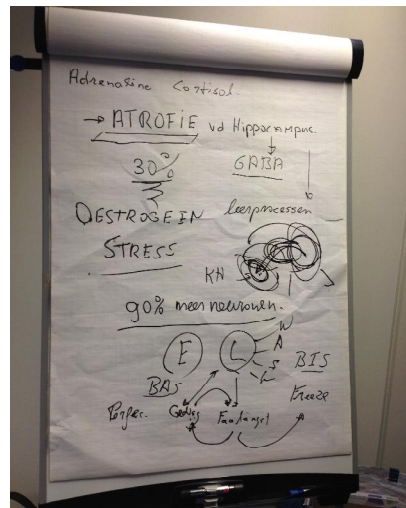 Adrenaline Cortisol.
→ ATROFIE vd Hippocampus.
30% GABA
OESTROGEIN leerprocessen
STRESS
KH
90% meer neuronen.
E L W A S L
BAS BIS
Perfec. Gedrag Faalangst Freeze